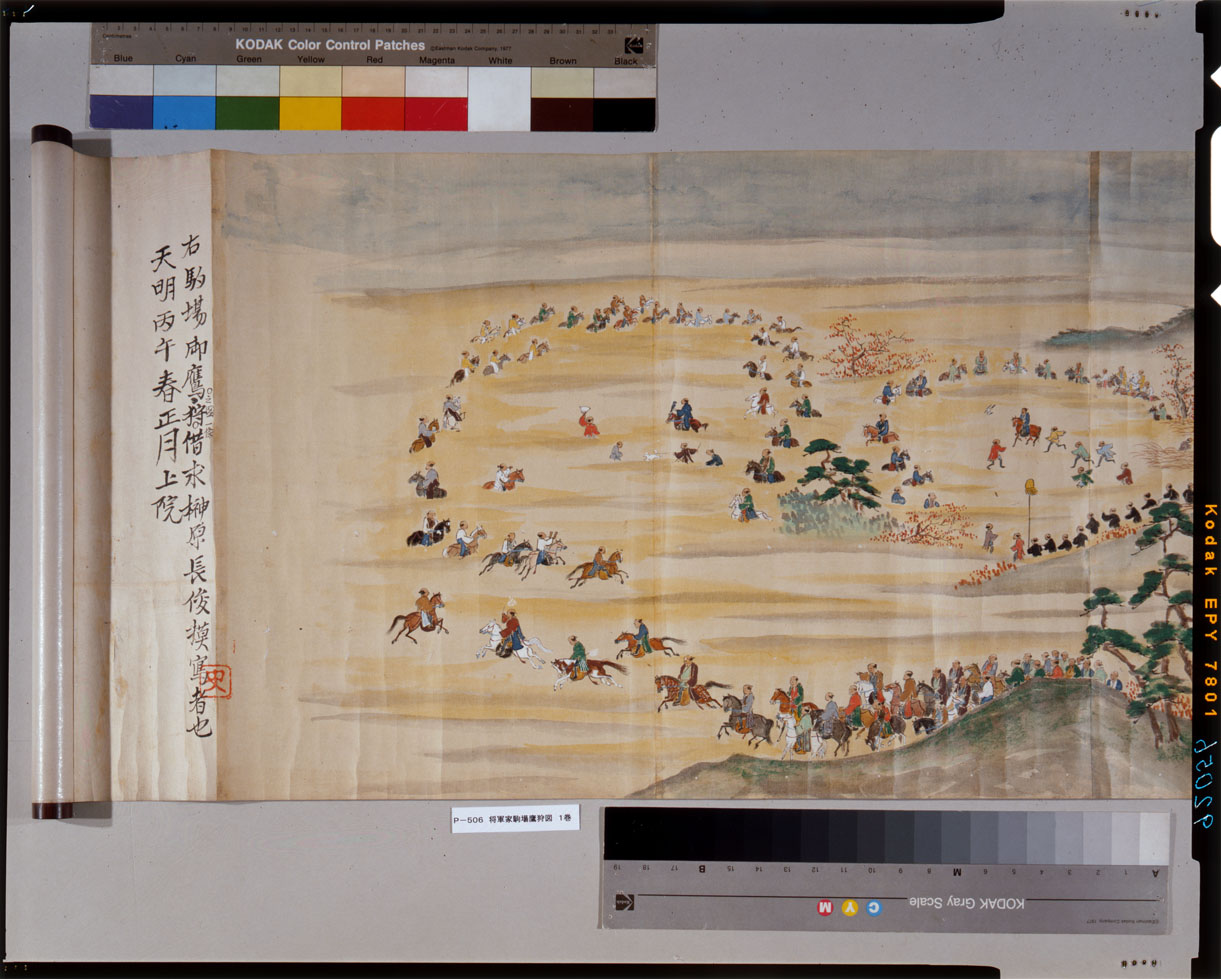 Centimetres
KODAK Color Control Patches ©Eastman Kodak Company, 1977
Blue Cyan Green Yellow Red Magenta White Brown Black
右駒場御鷹狩借求榊原長俊摸寫者也
天明丙午春正月上院
P-506 将軍家駒場鷹狩図 1巻
A 1 2 3 4 5 6 M 8 9 10 11 12 13 14 15 B 17 18 19
KODAK Gray Scale
C Y M
Kodak EPY 7801
92059